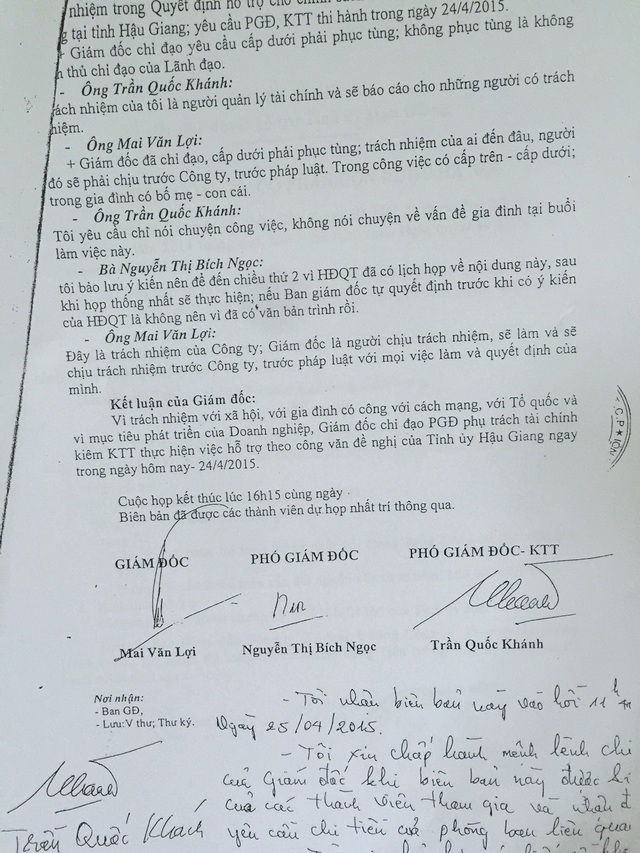 nhiệm trong Quyết định hỗ trợ cho
g tại tỉnh Hậu Giang; yêu cầu PGĐ, KTT thi hành trong ngày 24/4/2015.
+ Giám đốc chỉ đạo yêu cầu cấp dưới phải phục tùng; không phục tùng là không
thủ chỉ đạo của Lãnh đạo.
- Ông Trần Quốc Khánh:
rách nhiệm của tôi là người quản lý tài chính và sẽ báo cáo cho những người có trách
hiệm.
- Ông Mai Văn Lợi:
+ Giám đốc đã chỉ đạo, cấp dưới phải phục tùng; trách nhiệm của ai đến đâu, người
đó sẽ phải chịu trước Công ty, trước pháp luật. Trong công việc có cấp trên - cấp dưới;
trong gia đình có bố mẹ - con cái.
- Ông Trần Quốc Khánh:
Tôi yêu cầu chỉ nói chuyện công việc, không nói chuyện về vấn đề gia đình tại buổi
làm việc này.
- Bà Nguyễn Thị Bích Ngọc:
tôi bảo lưu ý kiến nên để đến chiều thứ 2 vì HĐQT đã có lịch họp về nội dung này, sau
khi họp thống nhất sẽ thực hiện; nếu Ban giám đốc tự quyết định trước khi có ý kiến
của HĐQT là không nên vì đã có văn bản trình rồi.
- Ông Mai Văn Lợi:
Đây là trách nhiệm của Công ty; Giám đốc là người chịu trách nhiệm, sẽ làm và sẽ
chịu trách nhiệm trước Công ty, trước pháp luật với mọi việc làm và quyết định của
mình.
Kết luận của Giám đốc:
Vì trách nhiệm với xã hội, với gia đình có công với cách mạng, với Tổ quốc và
vì mục tiêu phát triển của Doanh nghiệp, Giám đốc chỉ đạo PGĐ phụ trách tài chính
kiêm KTT thực hiện việc hỗ trợ theo công văn đề nghị của Tỉnh ủy Hậu Giang ngay
trong ngày hôm nay- 24/4/2015.
C.P
Cuộc họp kết thúc lúc 16h15 cùng ngày
Biên bản đã được các thành viên dự họp nhất trí thông qua.
GIÁM ĐỐC PHÓ GIÁM ĐỐC PHÓ GIÁM ĐỐC- KTT
Mai Văn Lợi Nguyễn Thị Bích Ngọc Trần Quốc Khánh
Nơi nhận:
- Ban GĐ,
- Lưu:V thư; Thư ký.
- Tôi nhận biên bản này vào hồi 11h
Ngày 25/04/2015.
- Tôi xin chấp hành mệnh lệnh chỉ
của Giám đốc khi biên bản này được
của các thành viên tham gia và nhận
yêu cầu chi tiền của phòng ban liên qua
Trần Quốc Khánh